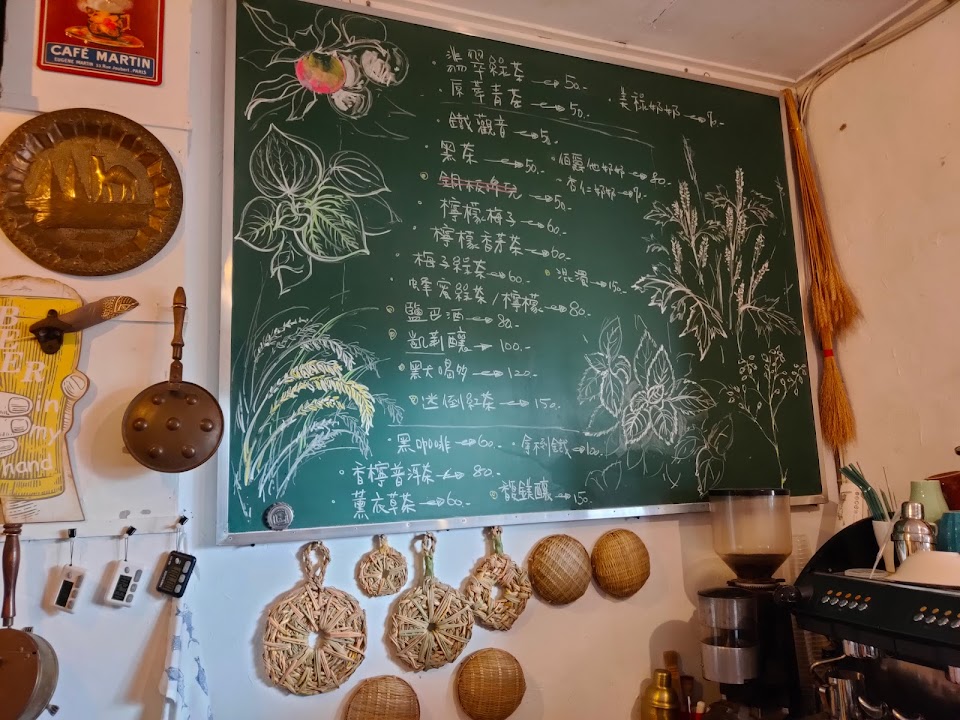 CAFÉ MARTIN
EUGÈNE MARTIN PARIS
BEER
in
my
hand
翡翠綠茶 50.
原萃青茶 50.
美祿奶奶
鐵觀音 50.
黑茶 50.
伯爵他奶奶 80.
杏仁奶奶
50.
檸檬梅子 60.
檸檬香茅茶 60.
梅子綠茶 60.
混濁 150.
蜂蜜綠茶/檸檬 80.
鹽巴酒 80.
凱莉釀 100.
黑大喝多 120.
迷倒紅茶 150.
黑咖啡 60.
拿利鐵 100.
香檸普洱茶 80.
薰衣草茶 60.
150.